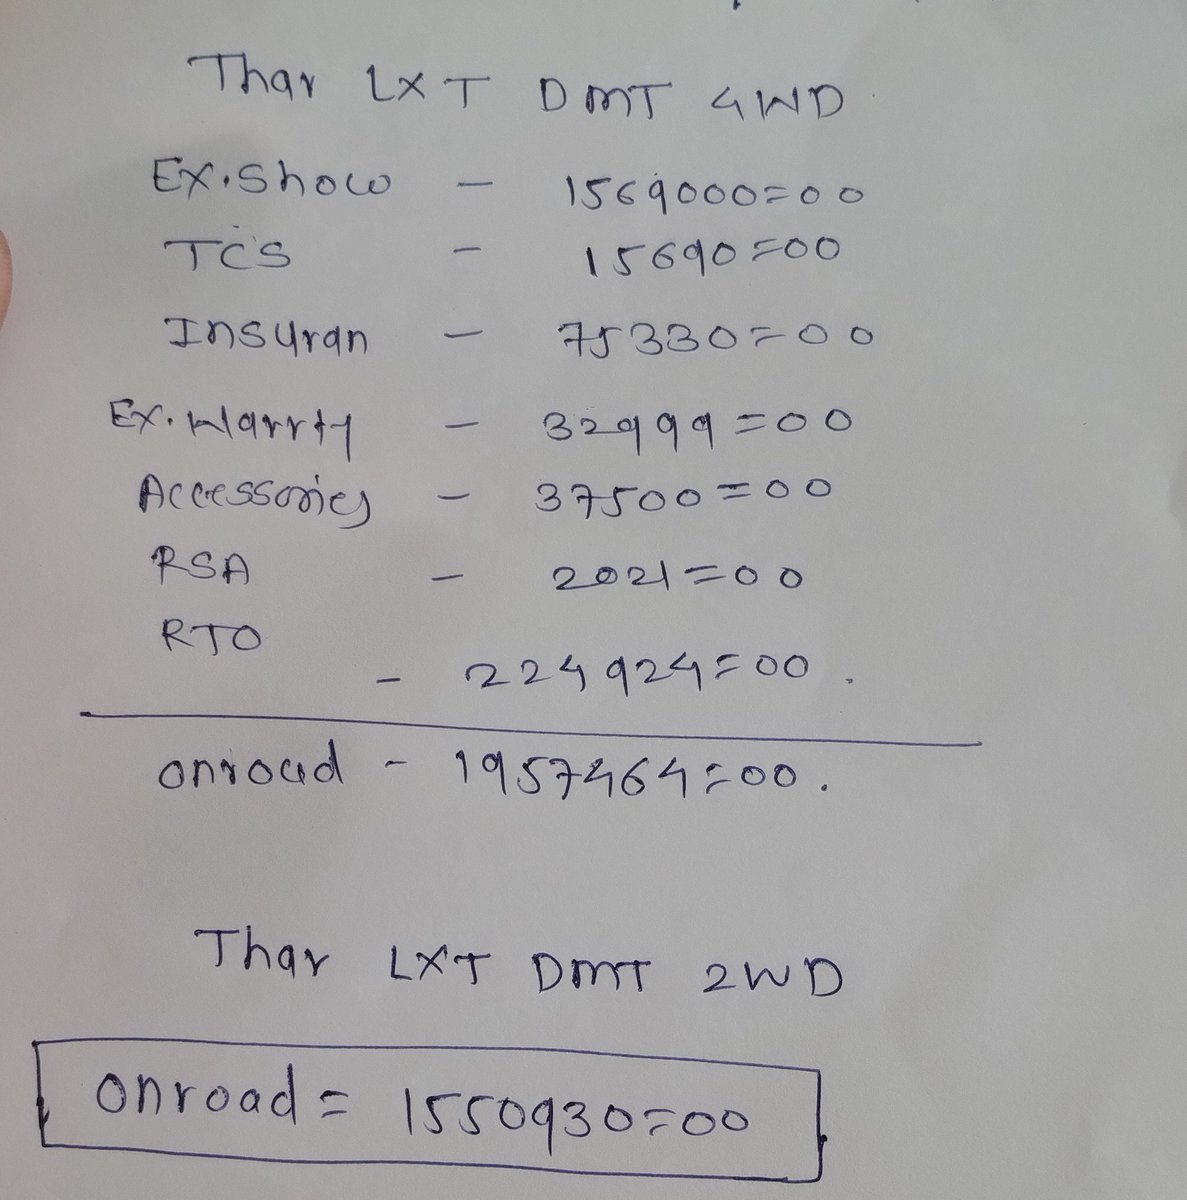 Thar LXT DMT 4WD
Ex.show - 1569000=00
TCS - 15690=00
Insuran - 75330=00
Ex.Warrty - 32999=00
Accessories - 37500=00
RSA - 2021=00
RTO
- 224924=00.
onroad - 1957464=00.
Thar LXT DMT 2WD
onroad = 1550930=00